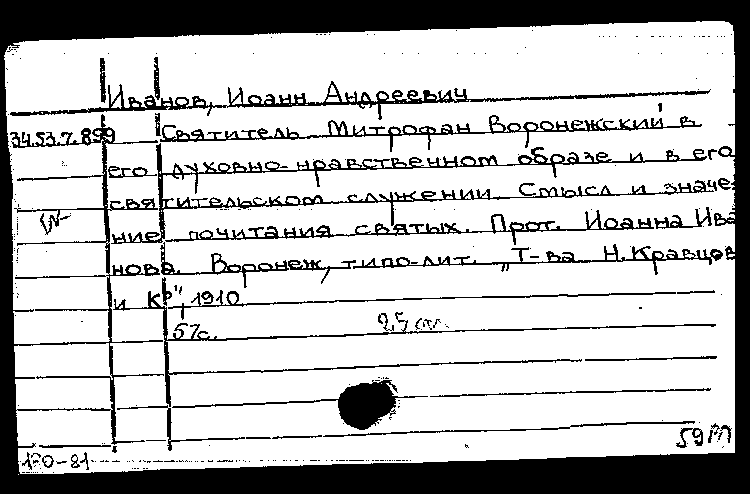 Иванов, Иоанн Андреевич
34.53.7.899 Святитель Митрофан Воронежский в
его духовно-нравственном образе и в его
святительском служении. Смысл и значе-
ние почитания святых. Прот. Иоанна Ива
нова. Воронеж, типо-лит. „Т-ва Н. Кравцов
и Кº", 1910
57с. 25 см.
59
130-81